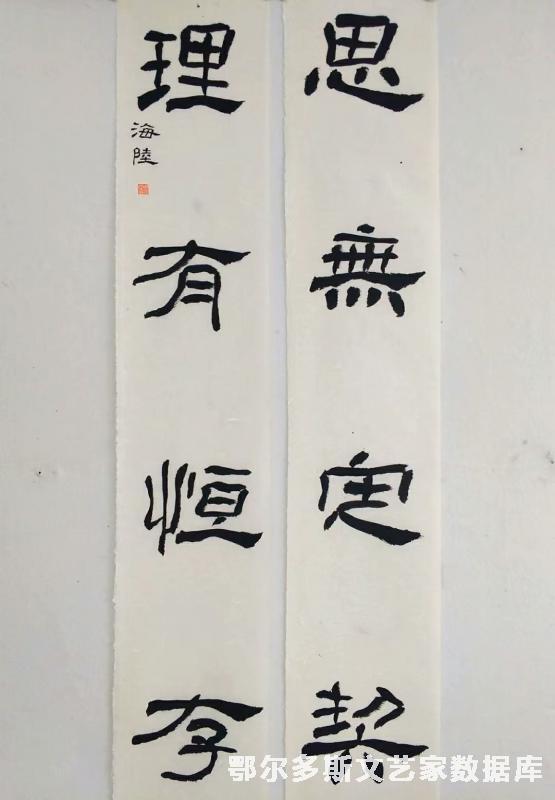 思無定契
理有恒存
海陸
鄂尔多斯文艺家数据库